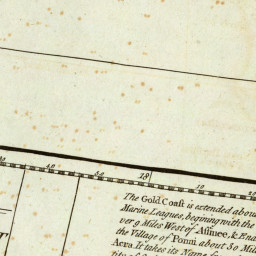 40
50
18
10
20
The Gold Coast is extended abou
Marine Leagues, begining with the
ver 9 Miles West of Assinee, & En
the Village of Ponni about 30 Mil
Acra. It takes its Name